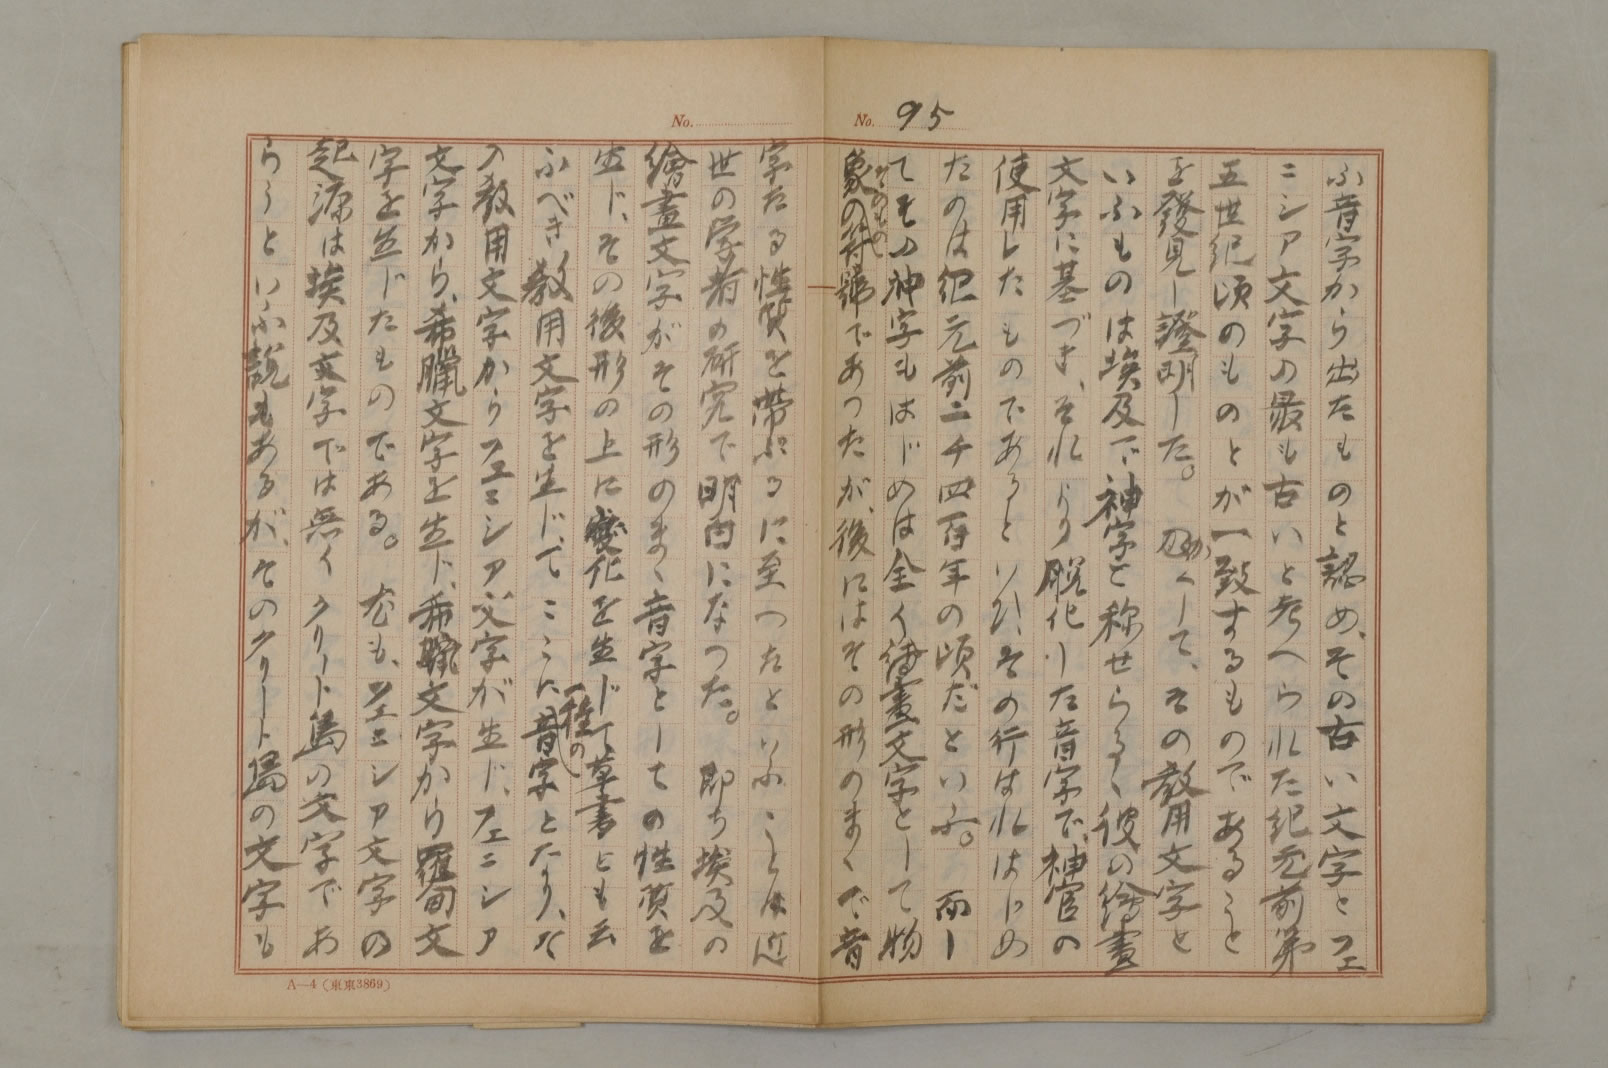 No. 95
ふ音字から出たものと認め、その古い文字とフェ
ニシア文字の最も古いと考へられた紀元前第
五世紀頃のものとが一致するものであること
を發見し證明した。かくして、その教用文字と
いふものは埃及で神字と称せらるゝ彼の繪畫
文字に基づき、それより脱化した音字で、神官の
使用したものであるといひ、その行はれはじめ
たのは紀元前二千四百年の頃だといふ。而し
てその神字もはじめは全く繪畫文字として物
象そのものの符號であつたが、後にはその形のまゝで音
No.
字たる性質を帶ぶるに至つたといふことは近
世の学者の研究で明白になつた。即ち埃及の
繪畫文字がその形のまゝ音字としての性質を
生じ、その後形の上に變化を生じて草書とも云
ふべき教用文字を生じ、てここに一種の音字となり、そ
の教用文字からフェニシア文字が生じ、フェニシア
文字から、希臘文字を生じ、希臘文字から羅甸文
字を生じたものである。尤も、フェニシア文字の
起源は埃及文字では無くクリート島の文字であ
らうといふ説もあるが、そのクリート島の文字も
A—4（東東3869）